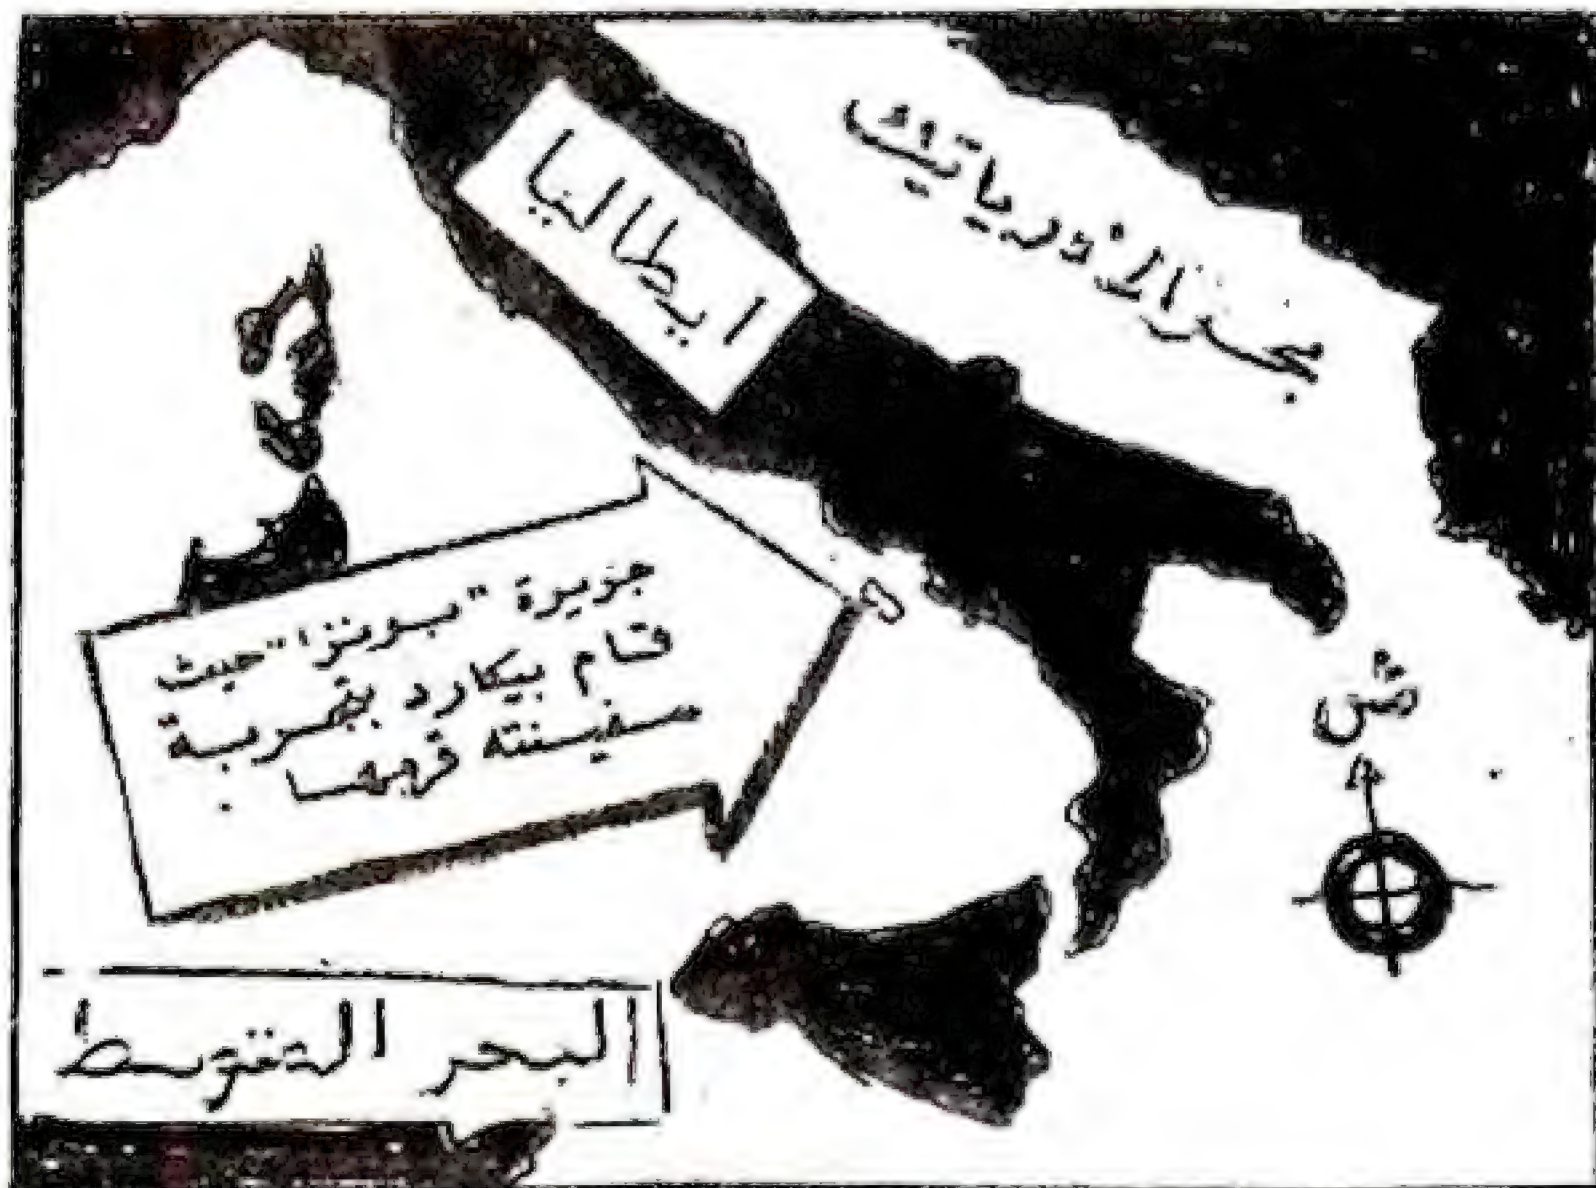 بحر الأدرياتيك
ايطاليا
جزيرة "بونزا" حيث
قام بيكارد بتجربة
سفينته قربها .
ش
البحر المتوسط